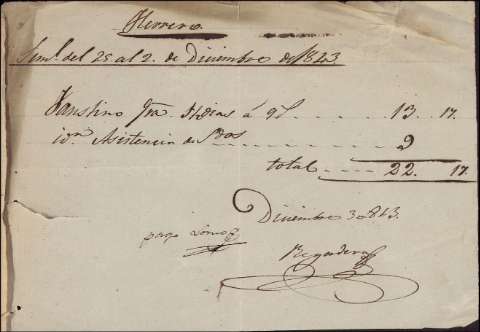 Herrero
Sem.l del 25 al 2. de Diciembre de 1843
Faustino dias á 9 13. 17.
id.m Asistencia de 9
total 22. 17.
Diciembre 3 de 843.
pago
Regadera